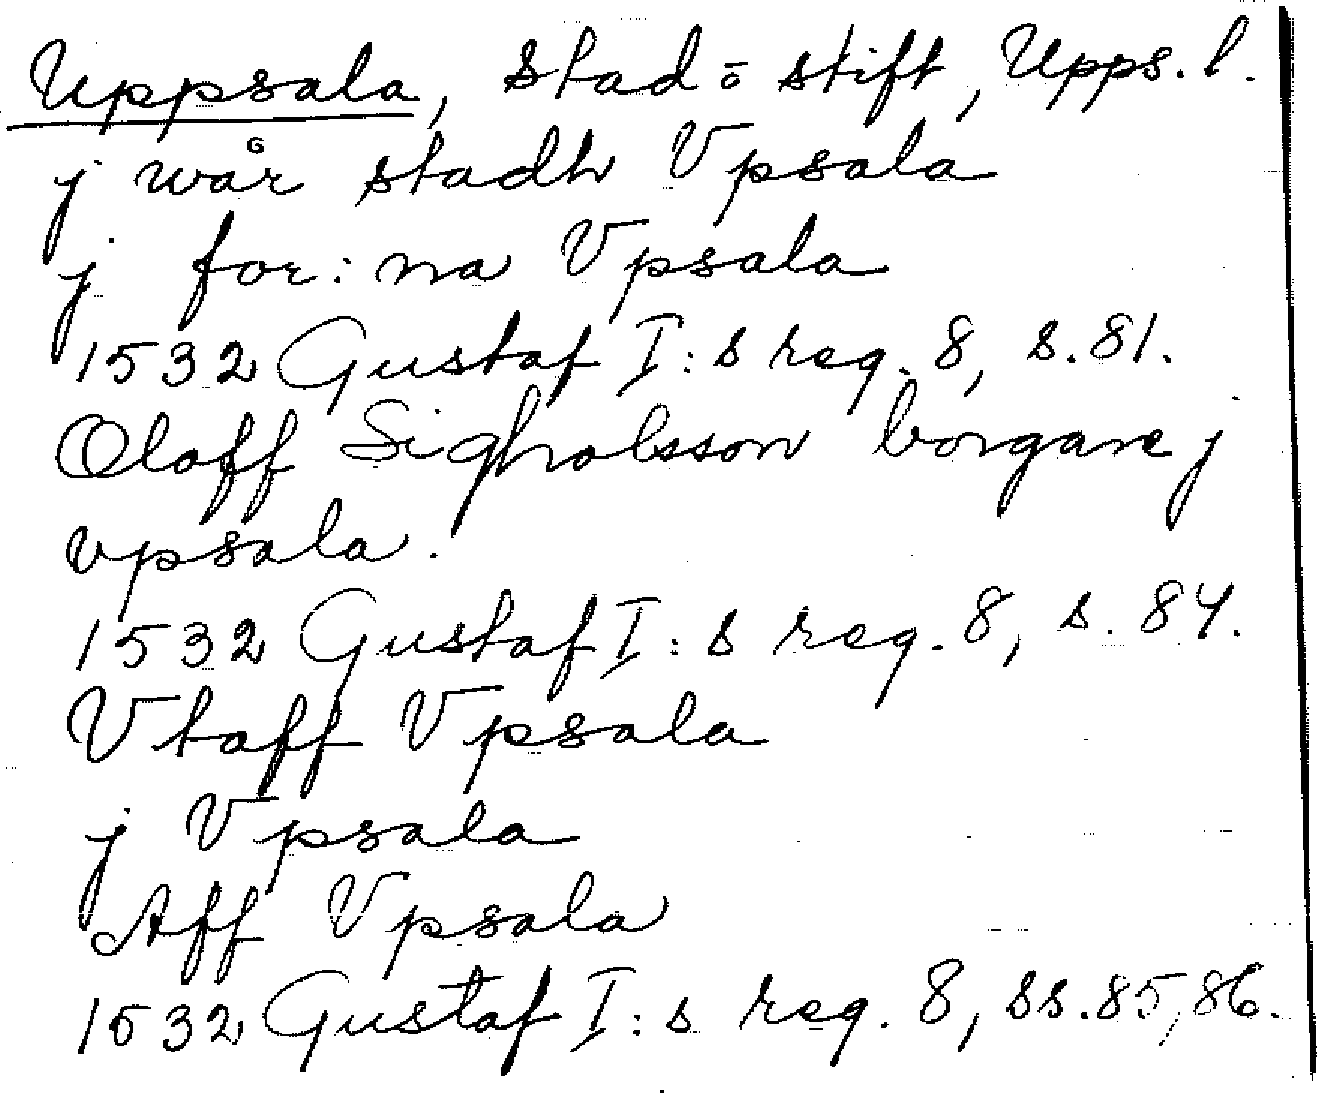 Uppsala, stad o stift, Upps. l.
j wår stadh Vpsala
j for: na Vpsala
1532 Gustaf I:s reg. 8, s. 81.
Oloff Sigholsson borgare j
vpsala.
1532 Gustaf I:s reg. 8, s. 84.
Vtaff Vpsala
j Vpsala
Aff Vpsala
1532 Gustaf I:s reg. 8, ss. 85, 86.